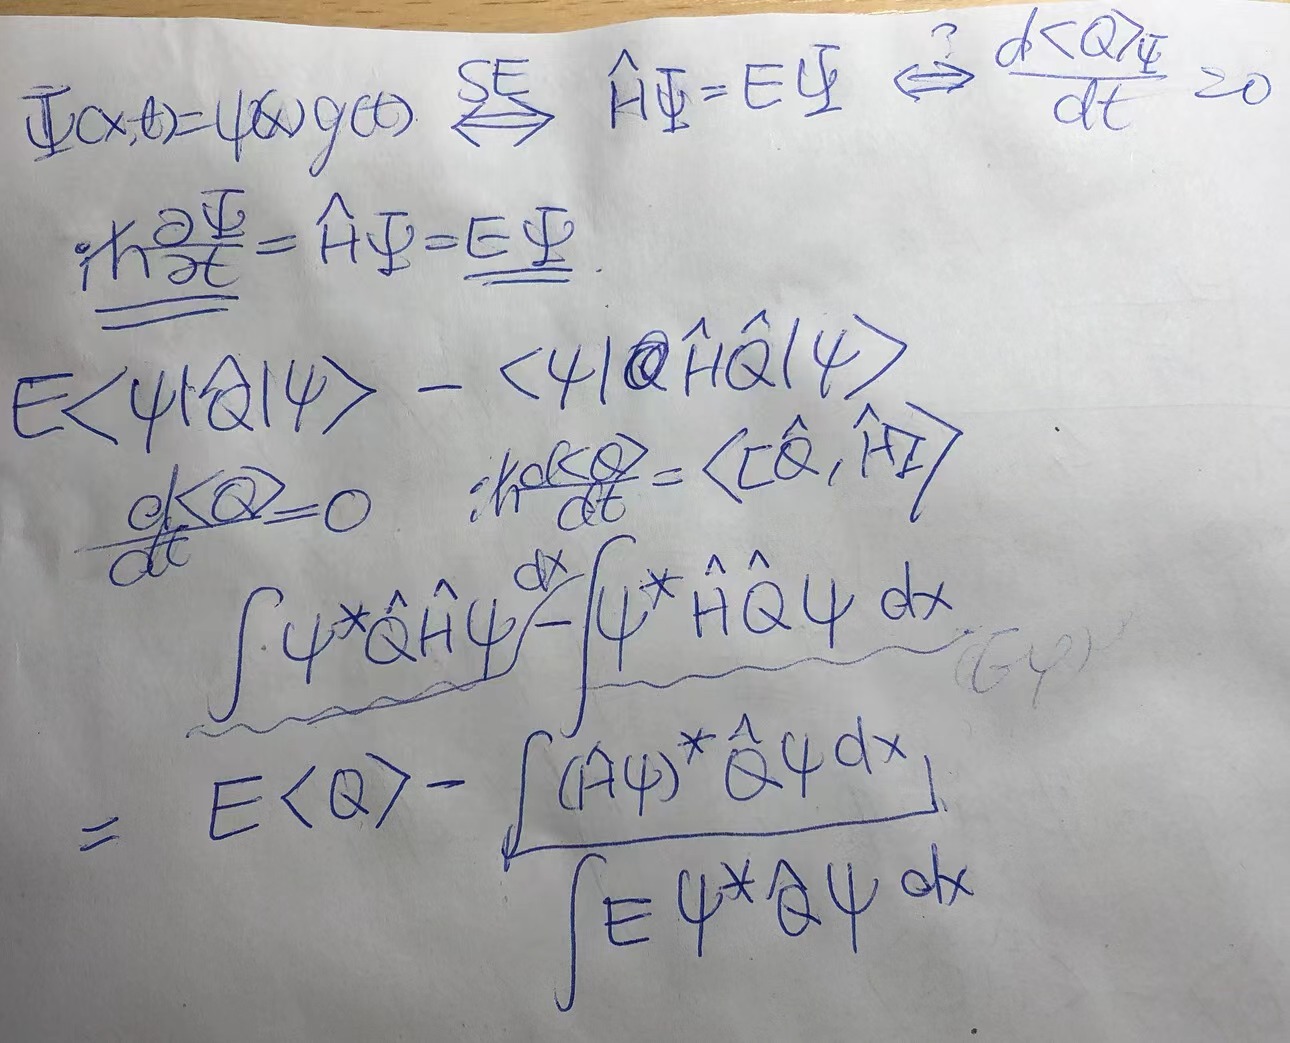 Ψ(x,t)=ψ(x)g(t) SE ⟺ ĤΨ=EΨ ⟺? d<Q>_Ψ/dt =0
iħ ∂Ψ/∂t = ĤΨ = EΨ
E<ψ|Q̂|ψ> - <ψ|ĤQ̂|ψ>
d<Q>/dt =0 iħ d<Q>/dt = <[Q̂,Ĥ]>
∫ψ*Q̂Ĥψ dx - ∫ψ*ĤQ̂ψ dx
= E<Q> - ∫(Ĥψ)*Q̂ψdx
∫Eψ*Q̂ψ dx